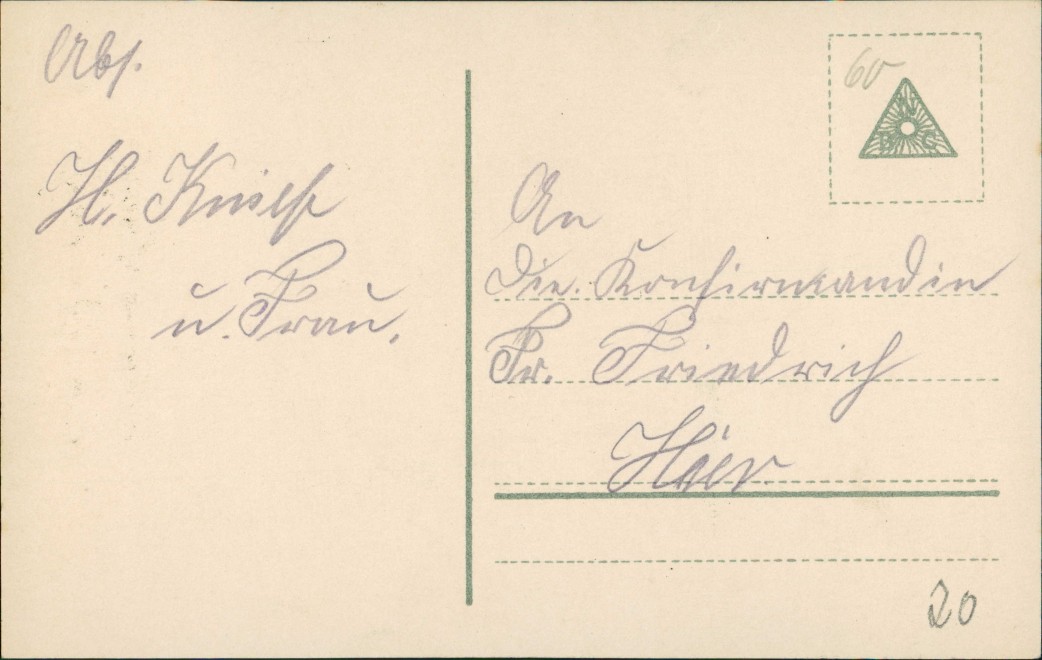 Abs.
H.
u. Frau.
60
An
die Konfirmandin
Fr. Friedrich
Hier
20